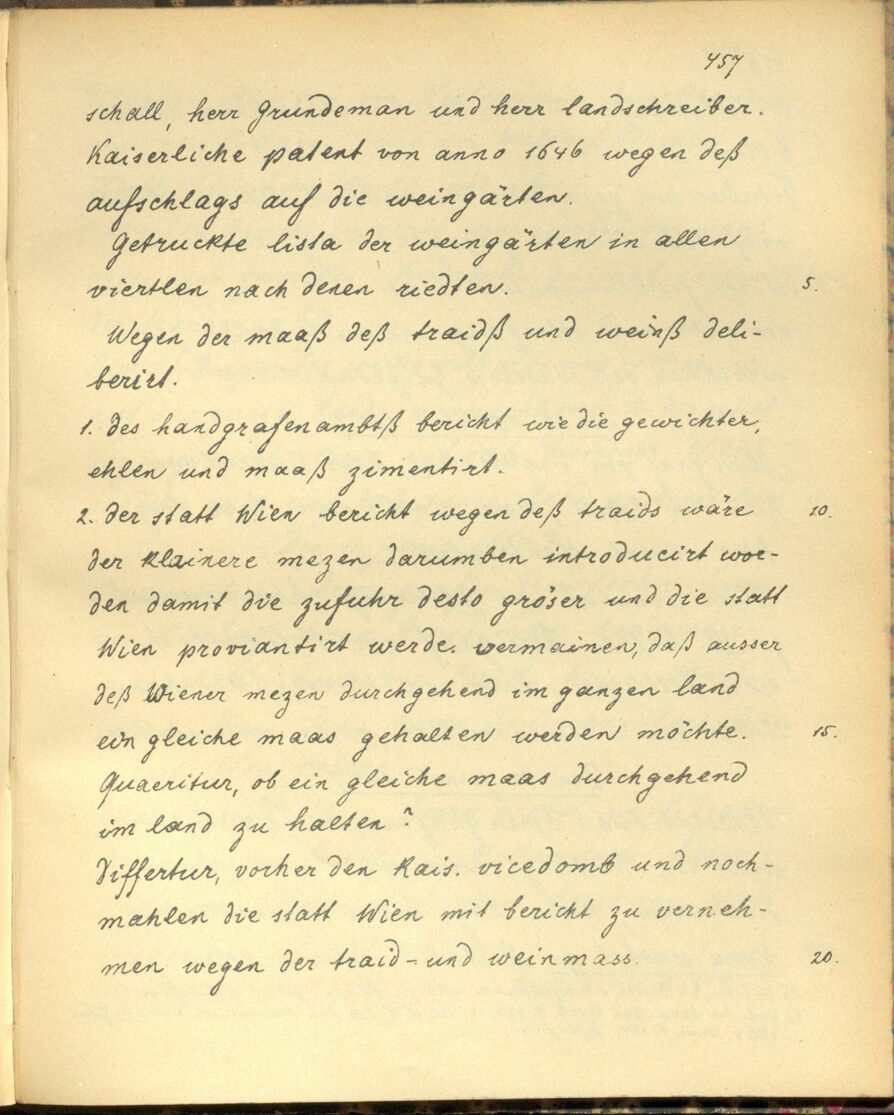 457
schall, herr Grundeman und herr landschreiber.
Kaiserliche patent von anno 1646 wegen deß
aufschlags auf die weingärten.
Getruckte lista der weingärten in allen
viertlen nach denen riedten. 5.
Wegen der maaß deß traidß und weinß deli-
berirt.
1. des handgrafenambtß bericht wie die gewichter,
ehlen und maaß zimentirt.
2. der statt Wien bericht wegen deß traids wäre 10.
der klainere mezen darumben introducirt wor-
den damit die zufuhr desto gröser und die statt
Wien proviantirt werde. vermainen, daß ausser
deß Wiener mezen durchgehend im ganzen land
ein gleiche maas gehalten werden möchte. 15.
Quaeritur, ob ein gleiche maas durchgehend
im land zu halten?
Differtur, vorher den kais. vicedomb und noch-
mahlen die statt Wien mit bericht zu verneh-
men wegen der traid- und weinmass. 20.